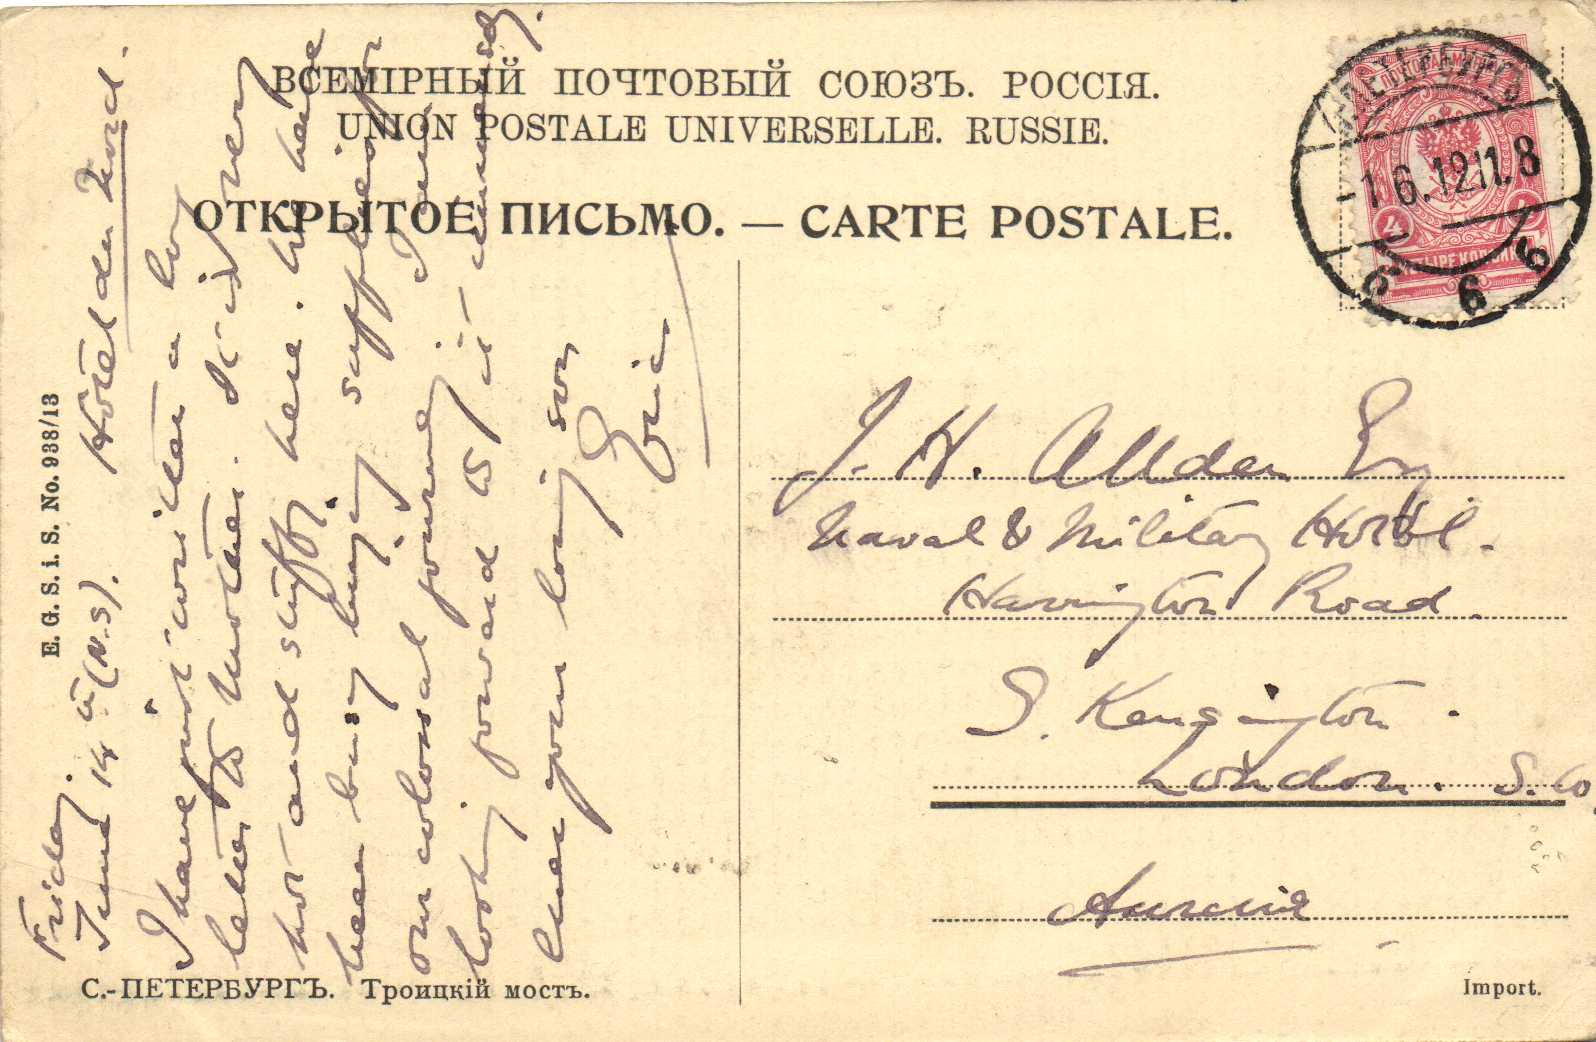 ВСЕМІРНЫЙ ПОЧТОВЫЙ СОЮЗЪ. РОССІЯ.
UNION POSTALE UNIVERSELLE. RUSSIE.
ОТКРЫТОЕ ПИСЬМО. — CARTE POSTALE.
С.ПЕТЕРБУРГЪ
-1.6.12 11.8
6 6 6
4 4
ЧЕТЫРЕ КОП
Hotel du Nord.
Friday.
June 14th (N.S).
I have just written a long
letter to Mother. It is very
hot and stuffy here. We have
been busy buying supplies for
our colossal journey I am
looking forward to it immensely.
Ever your loving son
Eric
J. H. Allden Esq
Naval & Military Hotel.
Harrington Road.
S. Kensington.
London. S.W.
Англія
E. G. S. i. S. No. 938/13
С.-ПЕТЕРБУРГЪ. Троицкій мостъ.
Import.